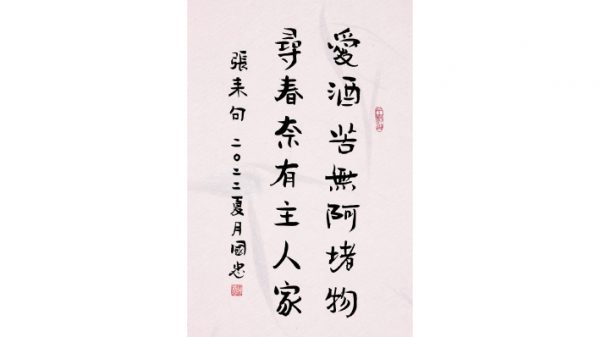 愛酒苦無阿堵物
尋春奈有主人家
張耒句 二〇二二夏月國忠